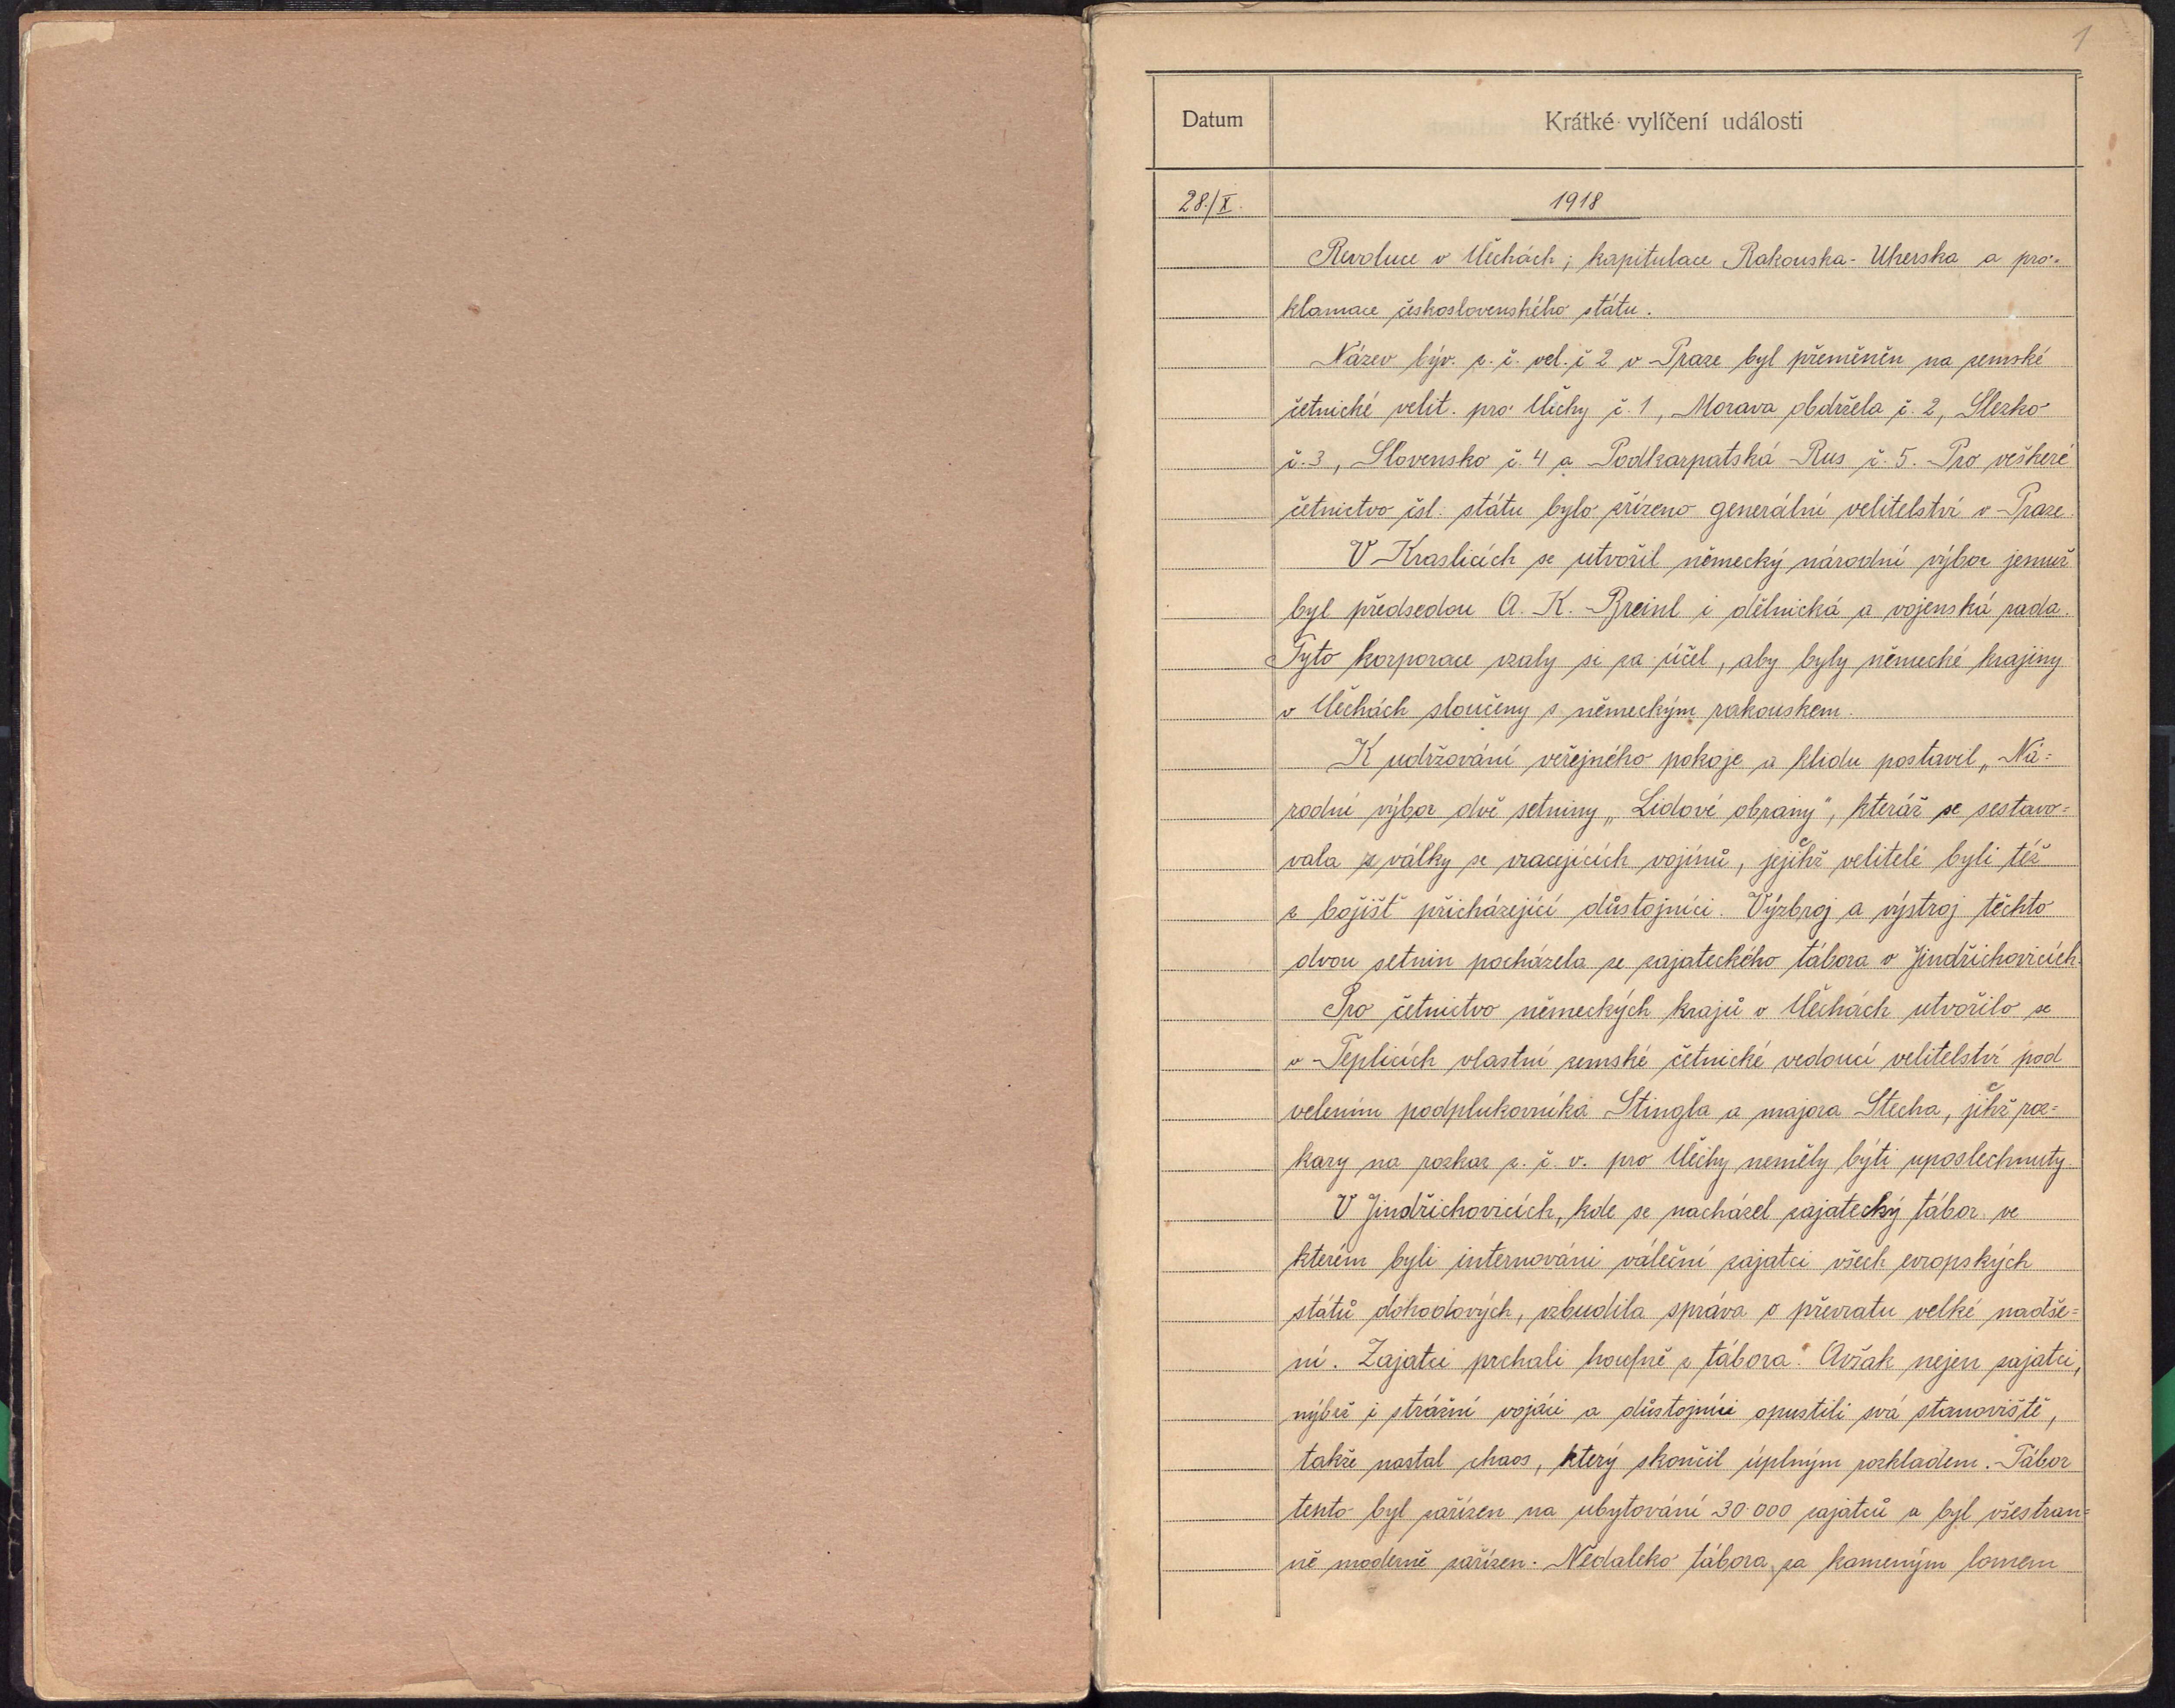 1
Datum
Krátké vylíčení události
28./X.
1918
Revoluce v Čechách; kapitulace Rakouska-Uherska a pro-
klamace československého státu.
Název býv. z. č. vel. č 2 v Praze byl přeměněn na zemské
četnické velit. pro Čechy č. 1, Morava obdržela č. 2, Slezko
č. 3, Slovensko č. 4 a Podkarpatská Rus č. 5. Pro veškeré
četnictvo čsl. státu bylo zřízeno generální velitelství v Praze.
V Kraslicích se utvořil německý národní výbor jemuž
byl předsedou A. K. Breinl i dělnická a vojenská rada.
Tyto korporace vzaly si za účel, aby byly německé krajiny
v Čechách sloučeny s německým rakouskem.
K udržování veřejného pokoje a klidu postavil „Ná=
rodní výbor dvě setniny „Lidové obrany", kteráž se sestavo=
vala z války se vracejících vojínů, jejíhž velitelé byli též
z bojišť přicházející důstojníci. Výzbroj a výstroj těchto
dvou setnin pocházela ze zajateckého tábora v Jindřichovicích.
Pro četnictvo německých krajů v Čechách utvořilo se
v Teplicích vlastní zemské četnické vedoucí velitelství pod
velením podplukovníka Stingla a majora Stecha, jihž roz=
kazy na rozkaz z. č. v. pro Čechy neměly býti uposlechnuty.
V Jindřichovicích, kde se nacházel zajatecký tábor ve
kterém byli internováni váleční zajatci všech evropských
států dohodových, vzbudila správa o převratu velké nadše=
ní. Zajatci prchali houfně z tábora. Avšak nejen zajatci,
nýbrž i strážní vojáci a důstojníci opustili svá stanoviště,
takže nastal chaos, který skončil úplným rozkladem. Tábor
tento byl zařízen na ubytování 30.000 zajatců a byl všestran=
ně moderně zařízen. Nedaleko tábora za kameným lomem